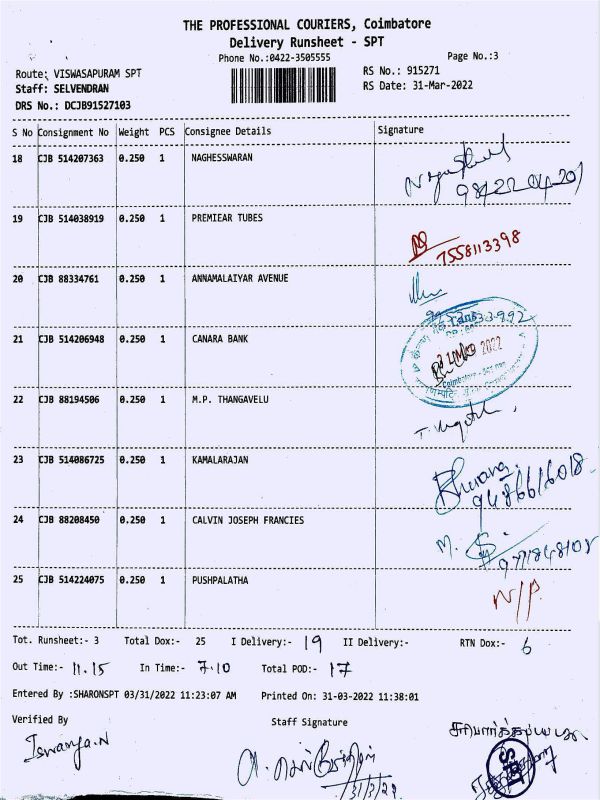 THE PROFESSIONAL COURIERS, Coimbatore
Delivery Runsheet - SPT
Phone No.:0422-3505555
Page No.:3
Route: VISWASAPURAM SPT
RS No.: 915271
Staff: SELVENDRAN
RS Date: 31-Mar-2022
DRS No.: DCJB91527103
S No Consignment No Weight PCS Consignee Details Signature
18 CJB 514207363 0.250 1 NAGHESSWARAN
19 CJB 514038919 0.250 1 PREMIEAR TUBES
7558113398
20 CJB 88334761 0.250 1 ANNAMALAIYAR AVENUE
21 CJB 514206948 0.250 1 CANARA BANK
2022
Coimbatore
22 CJB 88194506 0.250 1 M.P. THANGAVELU
23 CJB 514086725 0.250 1 KAMALARAJAN
9486616018
24 CJB 88208450 0.250 1 CALVIN JOSEPH FRANCIES
M.
25 CJB 514224075 0.250 1 PUSHPALATHA
N/P.
Tot. Runsheet:- 3 Total Dox:- 25 I Delivery:- 19 II Delivery:- RTN Dox:- 6
Out Time:- 11.15 In Time:- 7.10 Total POD:- 17
Entered By :SHARONSPT 03/31/2022 11:23:07 AM Printed On: 31-03-2022 11:38:01
Verified By Staff Signature
Iswarya.N
31/3/22